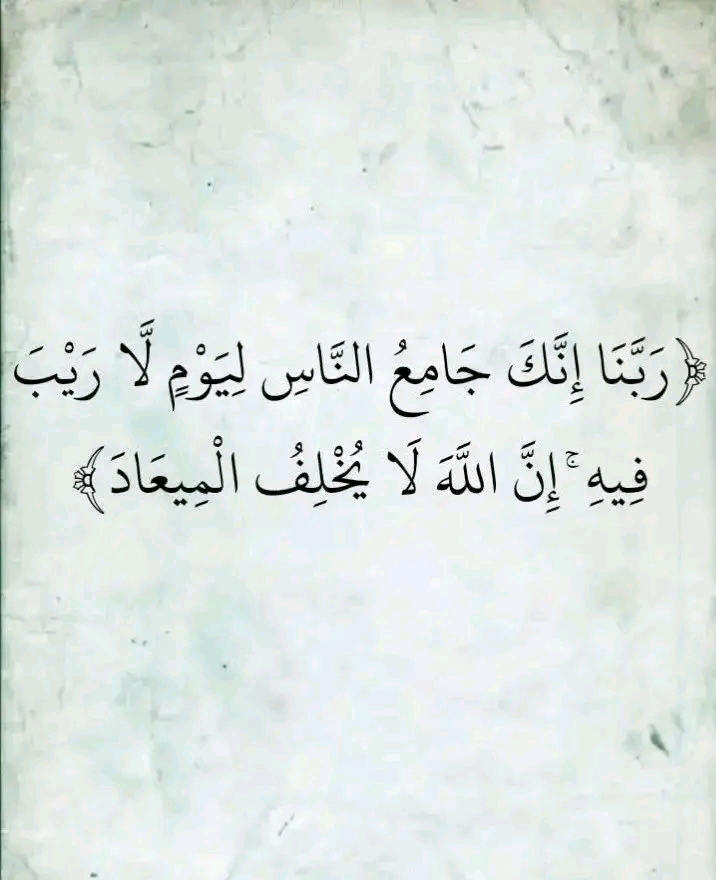 ﴿رَبَّنَا إِنَّكَ جَامِعُ النَّاسِ لِيَوْمٍ لَّا رَيْبَ
فِيهِ ۚ إِنَّ اللَّهَ لَا يُخْلِفُ الْمِيعَادَ﴾